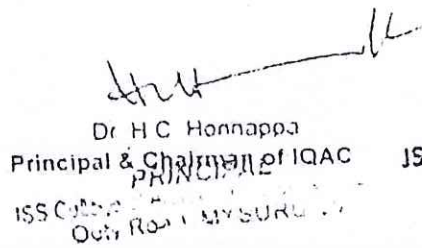 Dr H C Honnappa
Principal & Chairman of IQAC JS
PRINCIPAL
Ooty Road MYSURU